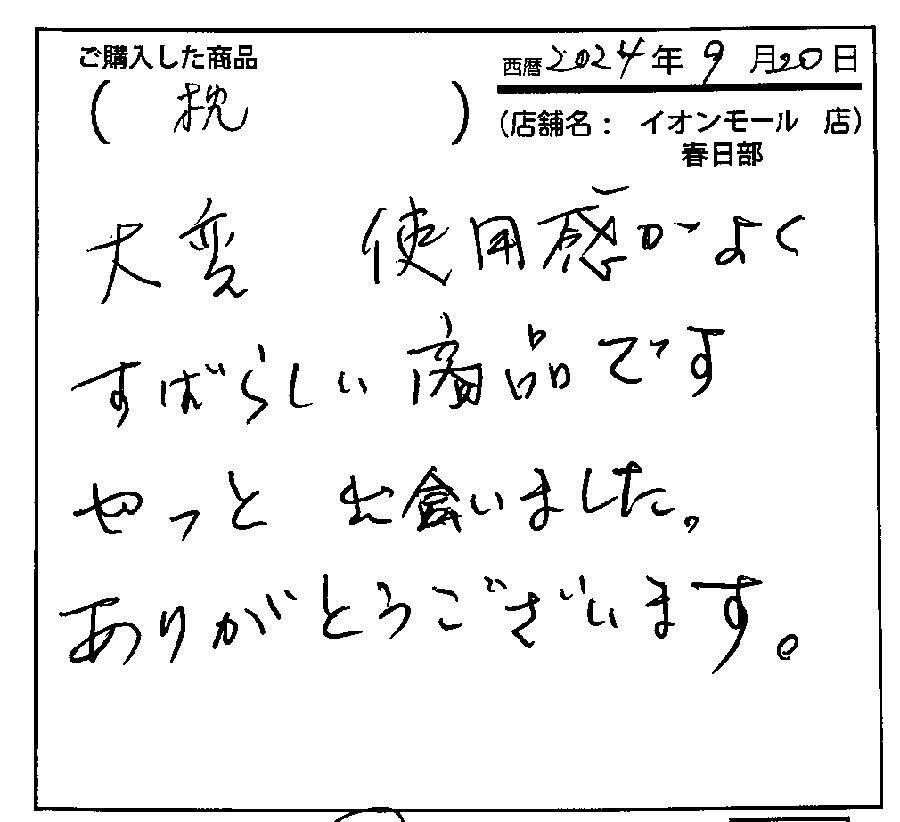 ご購入した商品
西暦2024年9月20日
(枕)
(店舗名： イオンモール 店)
春日部
大変 使用感がよく
すばらしい商品です
やっと 出会いました。
ありがとうございます。